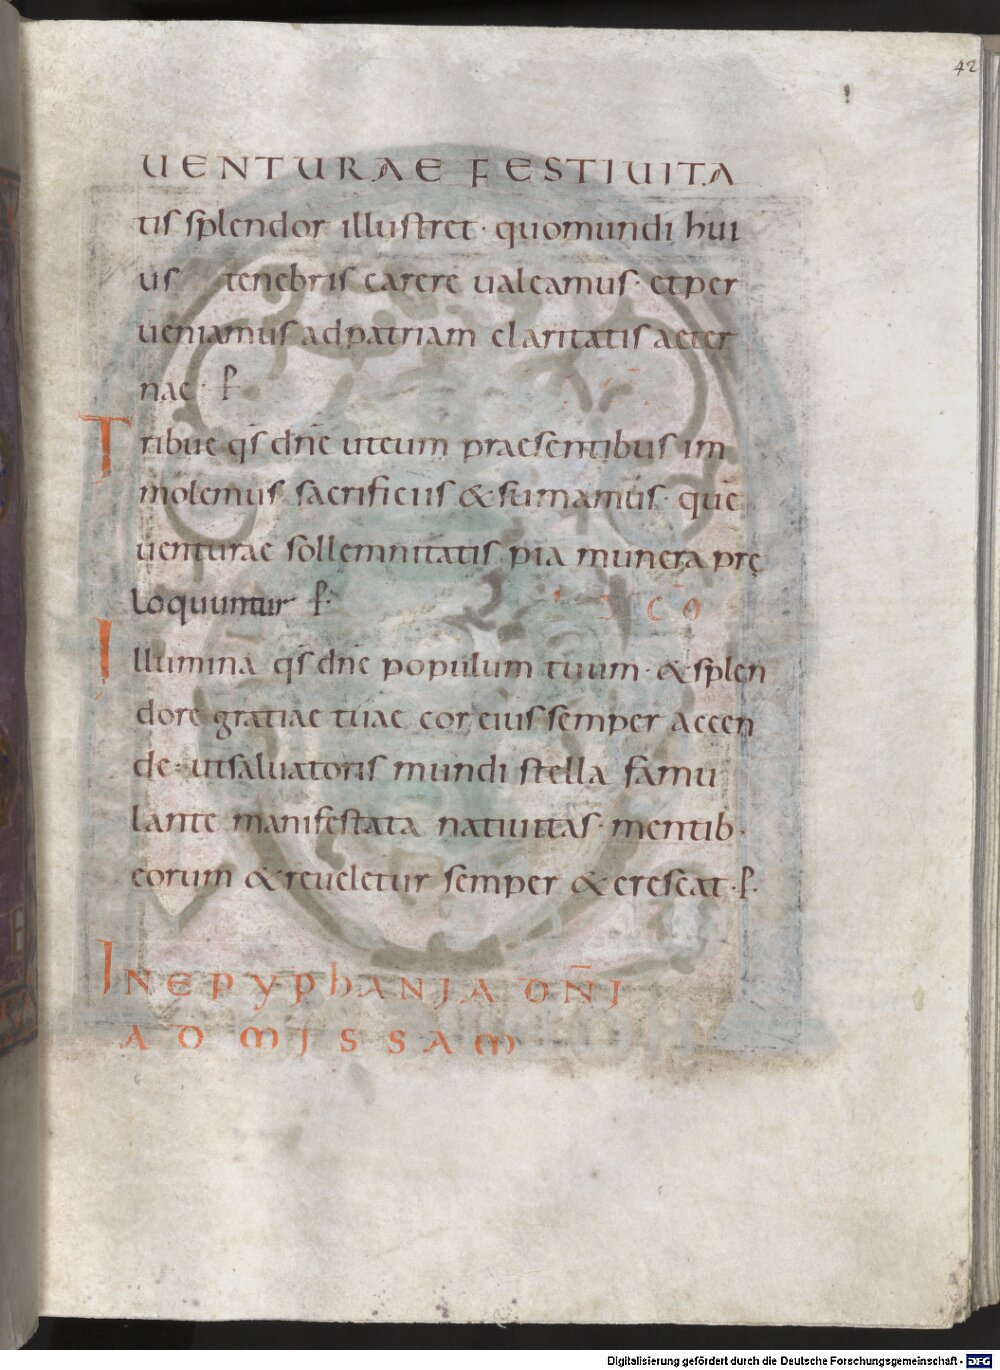 42
UENTURAE FESTIUITA
tis splendor illustret · quo mundi hui
us tenebris carere ualeamus · et per
ueniamus ad patriam claritatis aeter
nae · p̲
Tribue qs̄ dn̄e ut eum praesentibus im
molemus sacrificiis & sumamus · quē
uenturae sollemnitatis pia munera prę
loquuntur p̲·
CŌ
Illumina qs̄ dn̄e populum tuum · & splen
dore gratiae tuae cor eius semper accen
de · ut saluatoris mundi stella famu
lante manifestata natiuitas · mentib·
eorum & reueletur semper & crescat · p̲·
IN EPYPhANIA DN̄I
AD MISSAM
Digitalisierung gefördert durch die Deutsche Forschungsgemeinschaft - DFG